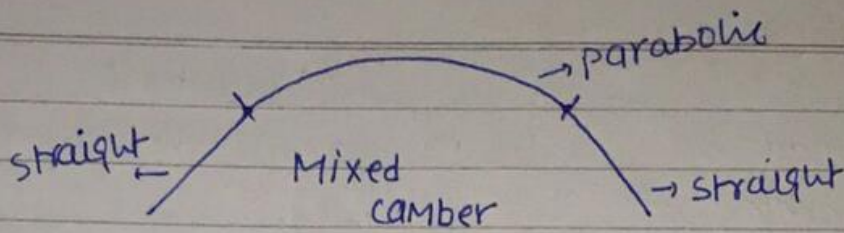 → parabolic
straight ←
Mixed
camber
→ straight